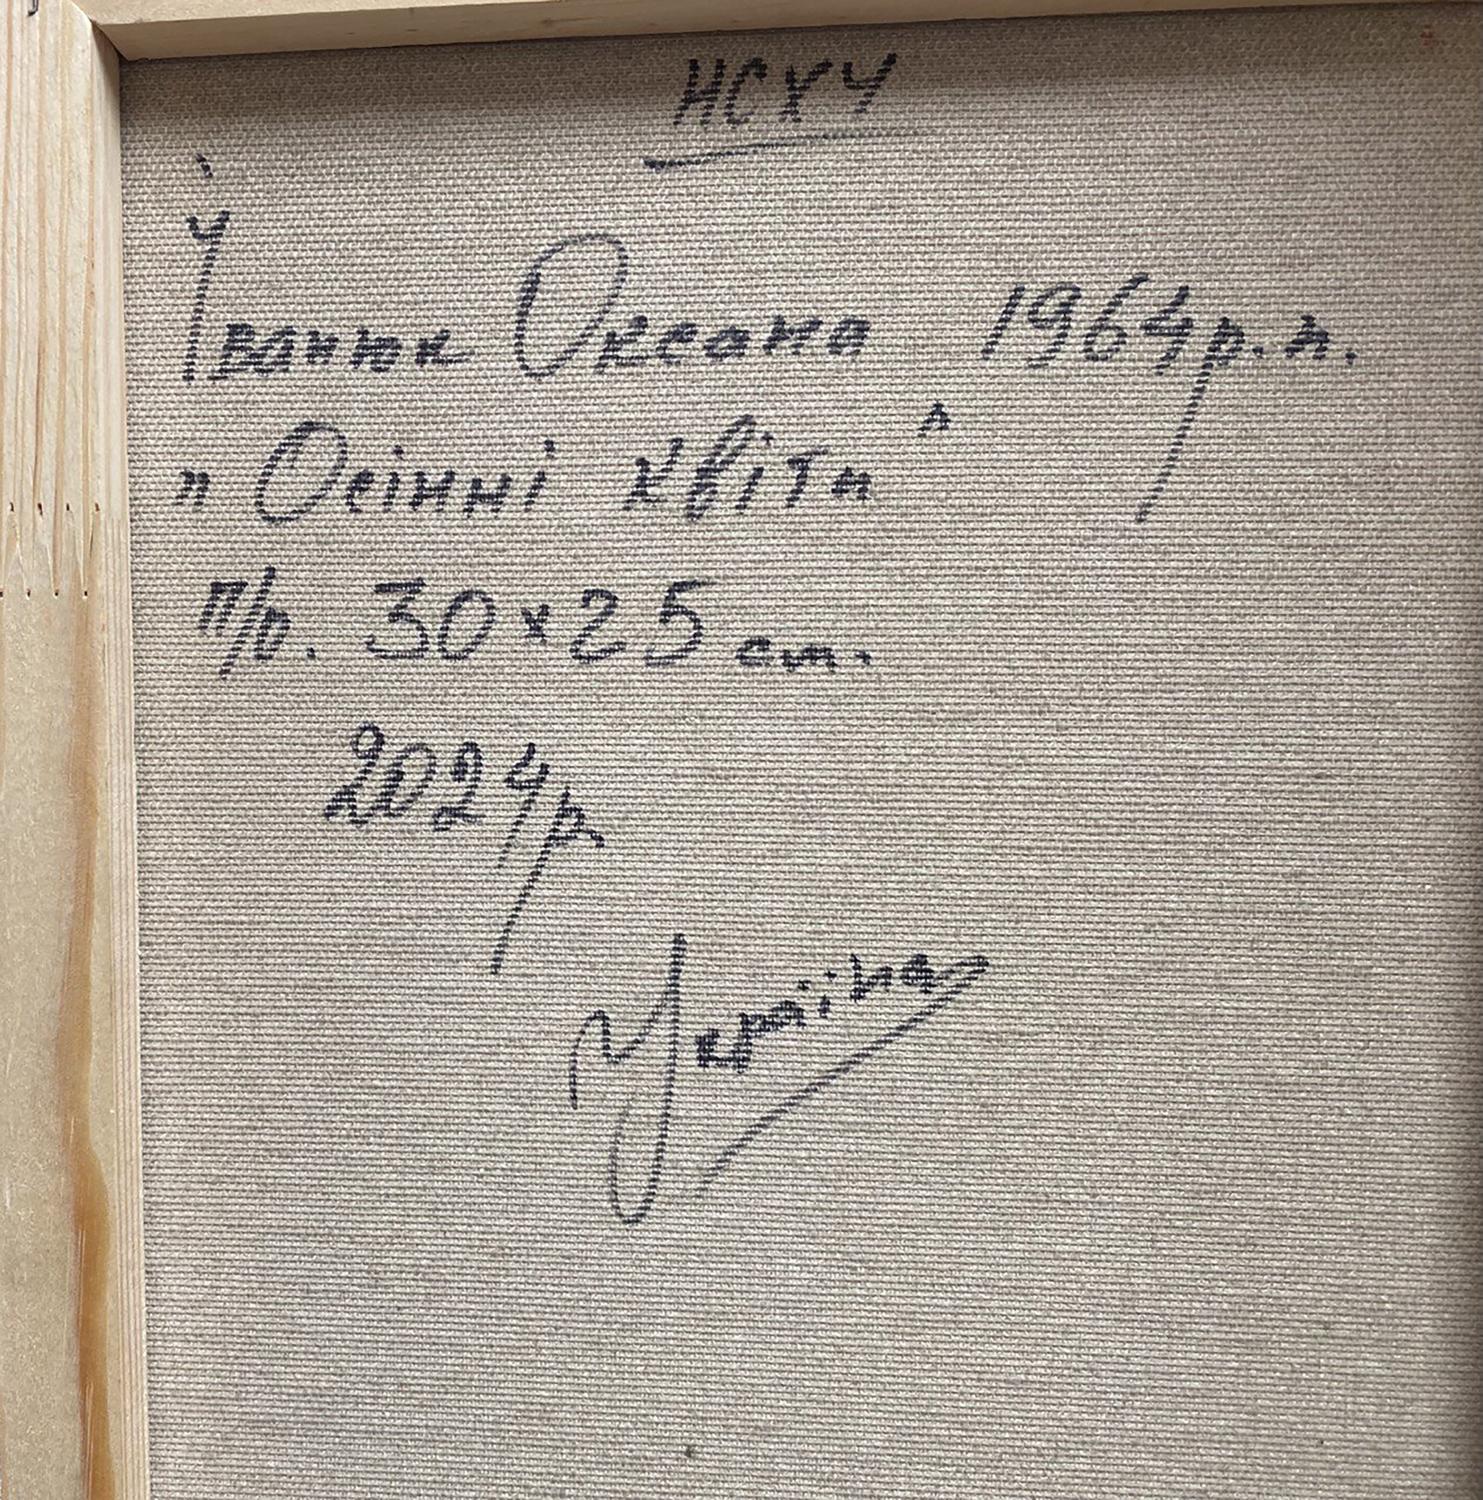 НСХУ
Іванюк Оксана 1964р.н.
„Осінні квіти"
п/о. 30×25 см.
2024р.
Україна